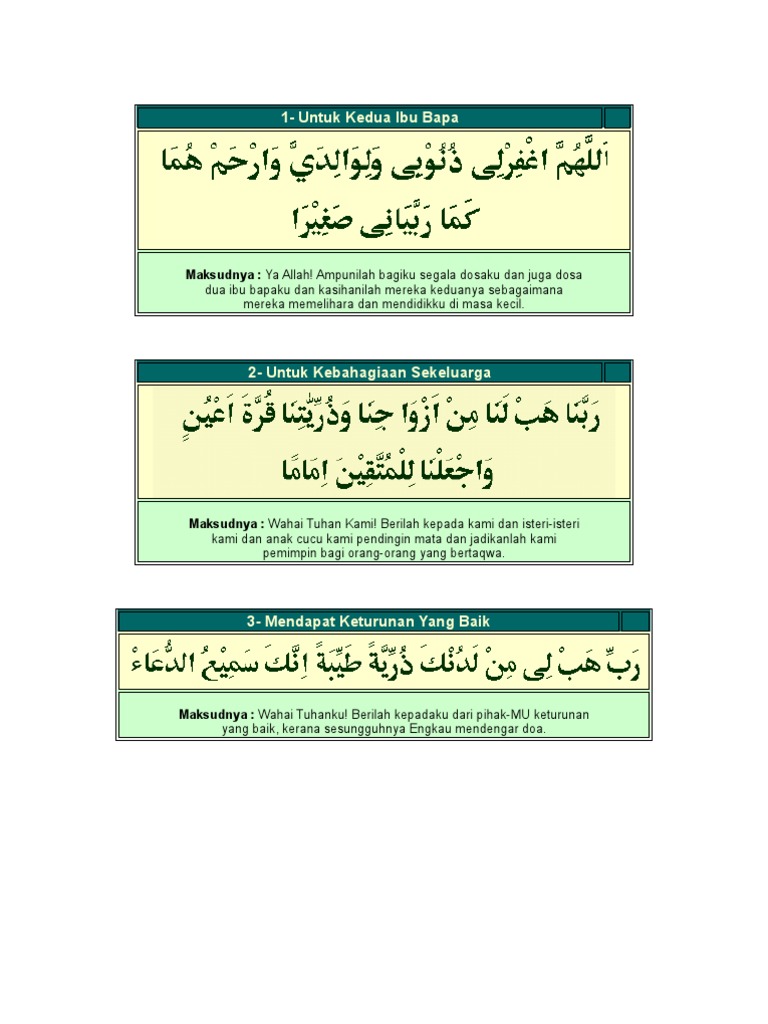 1- Untuk Kedua Ibu Bapa
اَللَّهُمَّ اغْفِرْلِى ذُنُوْبِى وَلِوَالِدَيَّ وَارْحَمْ هُمَا
كَمَا رَبَّيَانِى صَغِيْرَا
Maksudnya : Ya Allah! Ampunilah bagiku segala dosaku dan juga dosa
dua ibu bapaku dan kasihanilah mereka keduanya sebagaimana
mereka memelihara dan mendidikku di masa kecil.
2- Untuk Kebahagiaan Sekeluarga
رَبَّنَا هَبْ لَنَا مِنْ اَزْوَا جِنَا وَذُرِّيّٰتِنَا قُرَّةَ اَعْيُنٍ
وَاجْعَلْنَا لِلْمُتَّقِيْنَ اِمَامًا
Maksudnya : Wahai Tuhan Kami! Berilah kepada kami dan isteri-isteri
kami dan anak cucu kami pendingin mata dan jadikanlah kami
pemimpin bagi orang-orang yang bertaqwa.
3- Mendapat Keturunan Yang Baik
رَبِّ هَبْ لِى مِنْ لَدُنْكَ ذُرِّيَّةً طَيِّبَةً اِنَّكَ سَمِيْعُ الدُّعَاءْ
Maksudnya : Wahai Tuhanku! Berilah kepadaku dari pihak-MU keturunan
yang baik, kerana sesungguhnya Engkau mendengar doa.